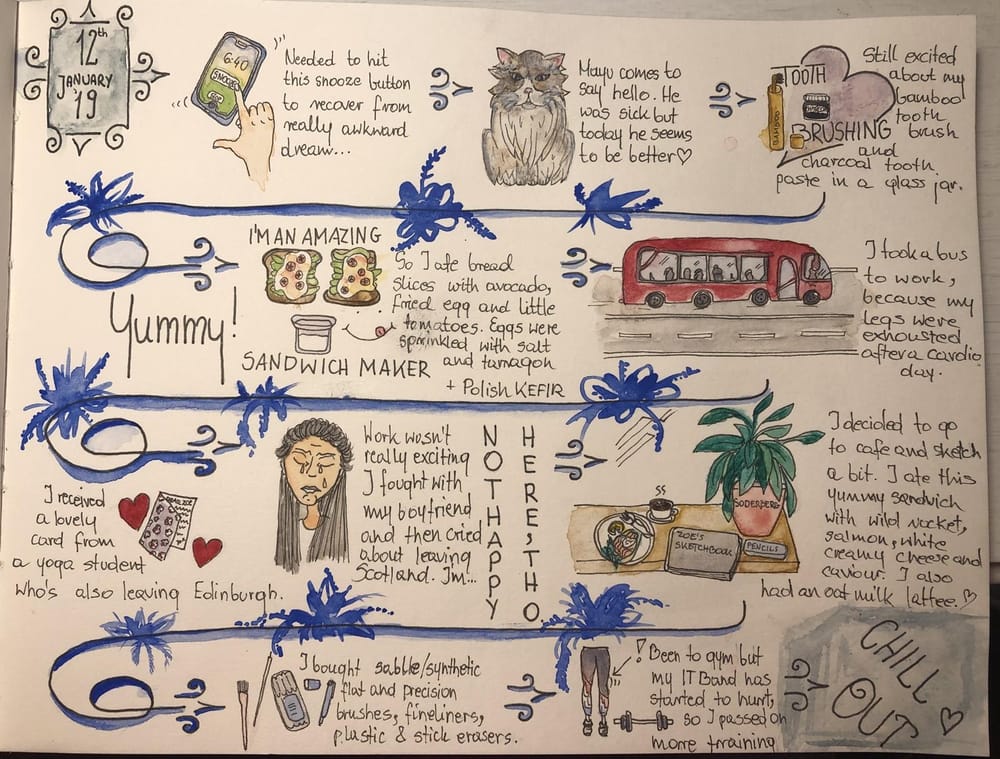 12th
JANUARY
'19
6:40
SNOOZE
STOP
Needed to hit
this snooze button
to recover from
really awkward
dream...
Mayu comes to
say hello. He
was sick but
today he seems
to be better♡
TOOTH
BAMBOO
BRUSHING
Still excited
about my
bamboo
tooth
brush
and
charcoal tooth
paste in a glass jar.
Yummy!
I'M AN AMAZING
SANDWICH MAKER
So I ate bread
slices with avocado,
fried egg and little
tomatoes. Eggs were
sprinkled with salt
and tarragon
+ Polish KEFIR
I took a bus
to work,
because my
legs were
exhousted
after a cardio
day.
I received
a lovely
card from
a yoga student
who's also leaving Edinburgh.
Work wasn't
really exciting
I fought with
my boyfriend
and then cried
about leaving
Scotland. I'm...
NOT HAPPY
HERE, THO
SODERBERG
ZOE'S
SKETCHBOOK
PENCILS
I decided to go
to cafe and sketch
a bit. I ate this
yummy sandwich
with wild rocket,
salmon, white
creamy cheese and
caviour. I also
had an oat milk lattee.♡
I bought sabble/synthetic
flat and precision
brushes, fineliners,
plastic & stick erasers.
! Been to gym but
my IT Band has
started to hurt,
so I passed on
more trraining
CHILL
OUT
♡